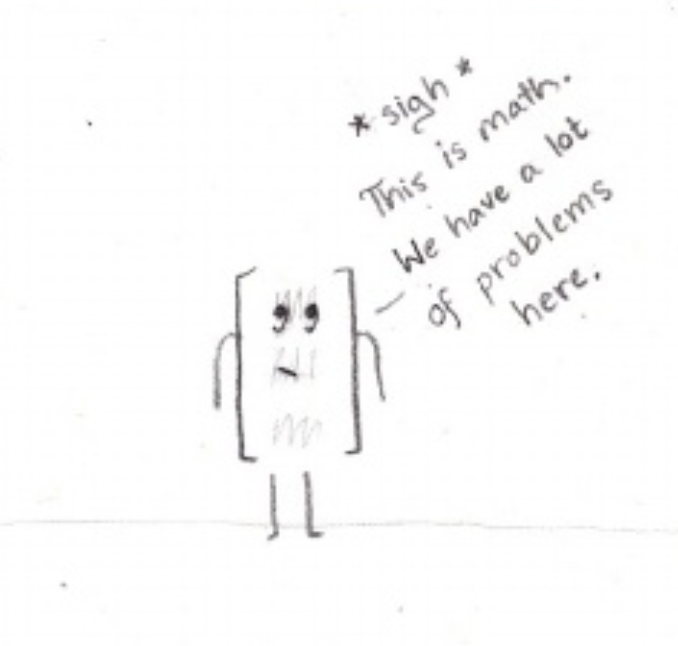 *sigh*
This is math.
We have a lot
of problems
here.